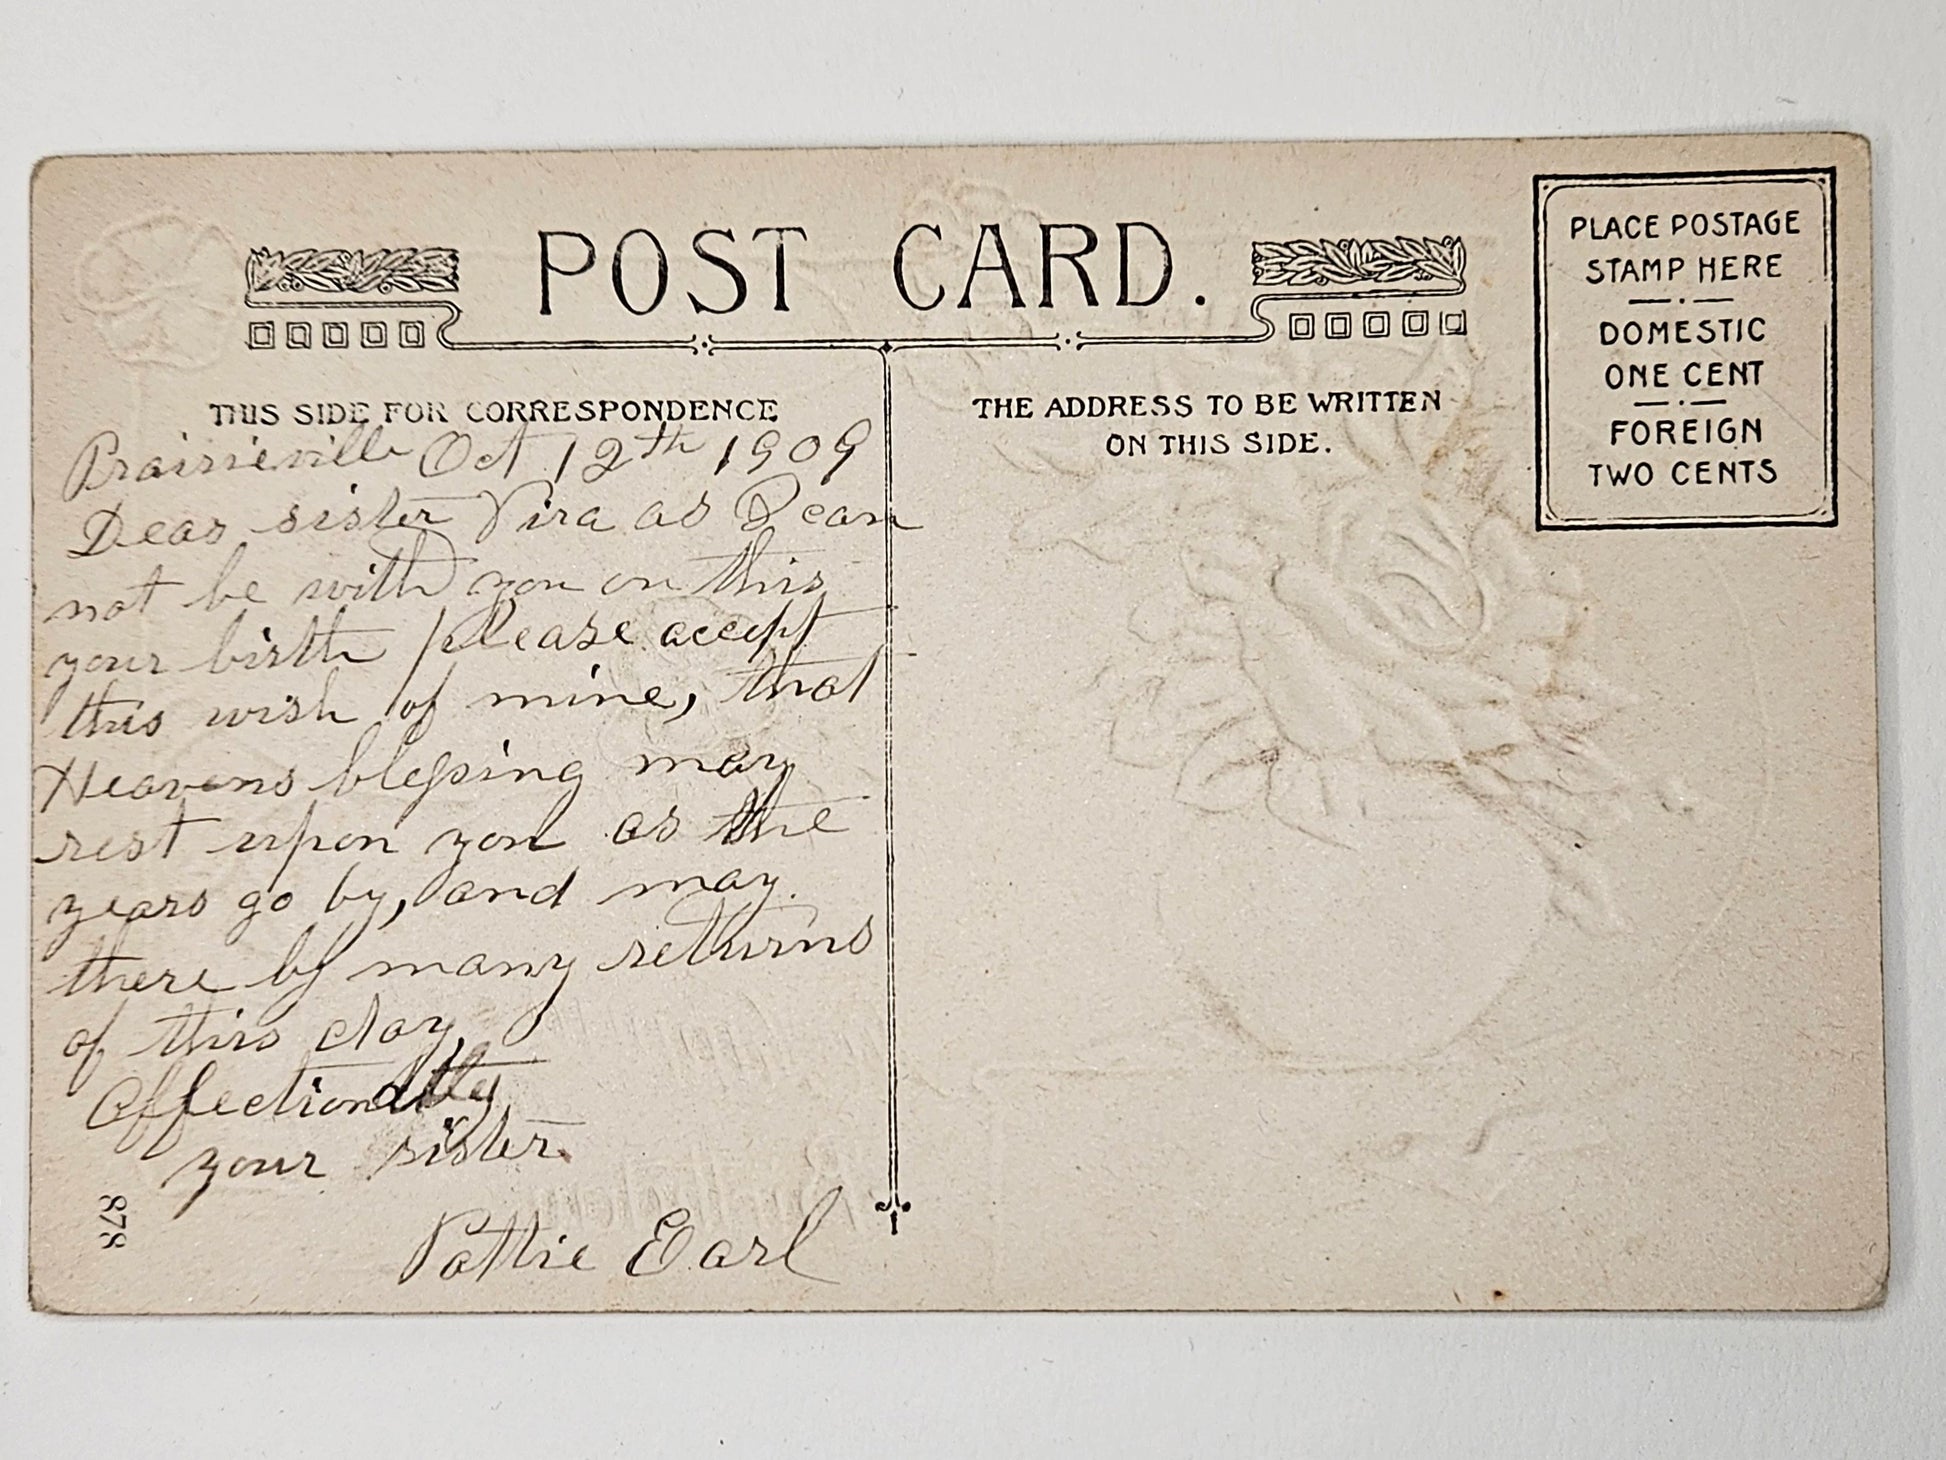 POST CARD.
PLACE POSTAGE
STAMP HERE
DOMESTIC
ONE CENT
FOREIGN
TWO CENTS
THIS SIDE FOR CORRESPONDENCE
THE ADDRESS TO BE WRITTEN
ON THIS SIDE.
Prairieville Oct 12th 1909
Dear sister Vira as I can
not be with you on this
your birth please accept
this wish of mine, that
Heavens blessing may
rest upon you as the
years go by, and may
there by many returns
of this day,
Affectionatly
your sister
Pattie Earl
878